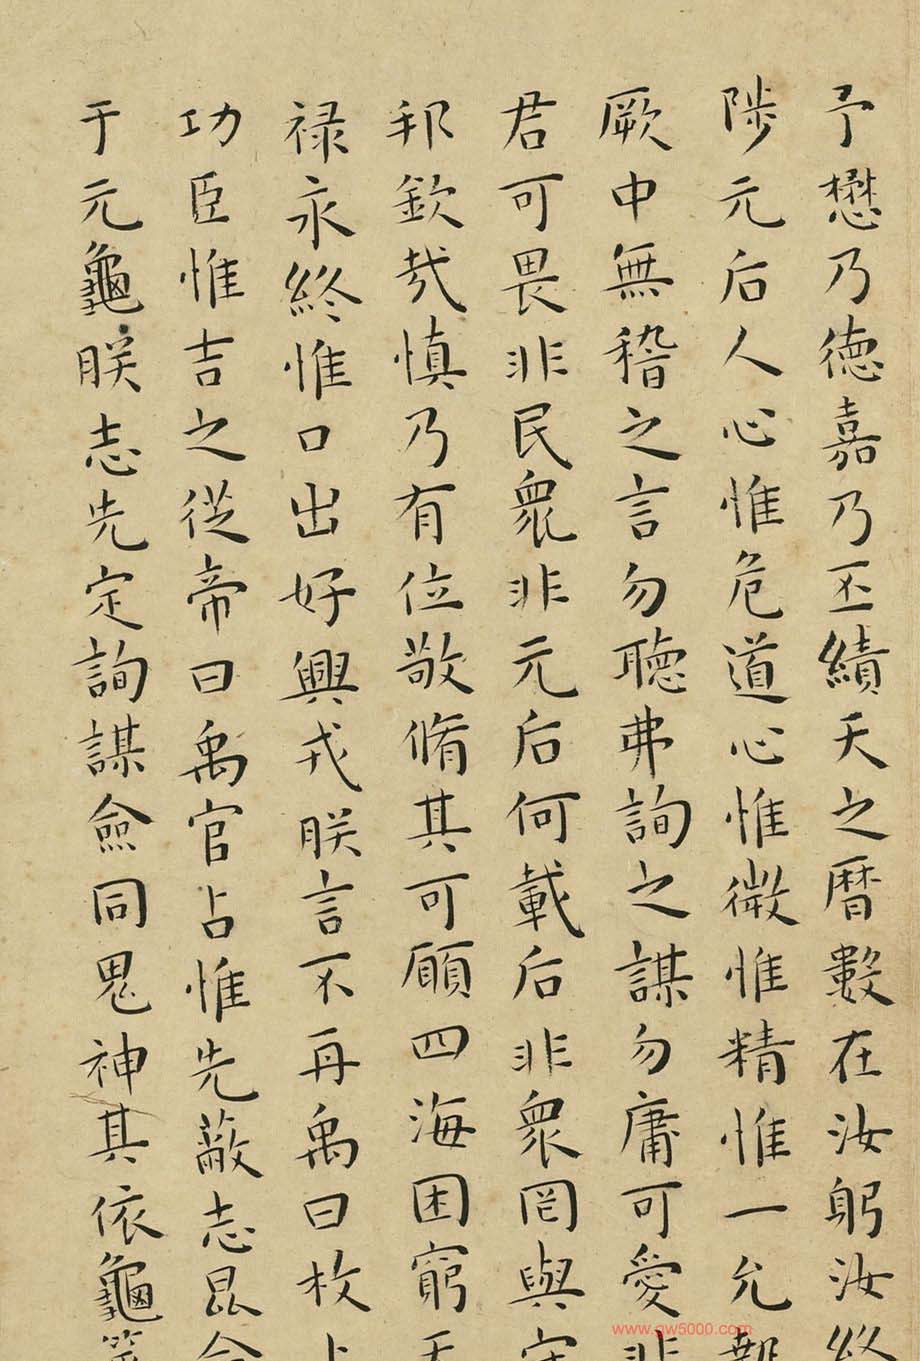 予懋乃德嘉乃丕績天之曆數在汝躬汝終
陟元后人心惟危道心惟微惟精惟一允
厥中無稽之言勿聽弗詢之謀勿庸可愛非
君可畏非民衆非元后何載后非衆罔與守
邦欽哉慎乃有位敬脩其可願四海困窮天
禄永終惟口出好興戎朕言不再禹曰枚卜
功臣惟吉之從帝曰禹官占惟先蔽志昆命
于元龜朕志先定詢謀僉同鬼神其依龜筮
www.gw5000.com